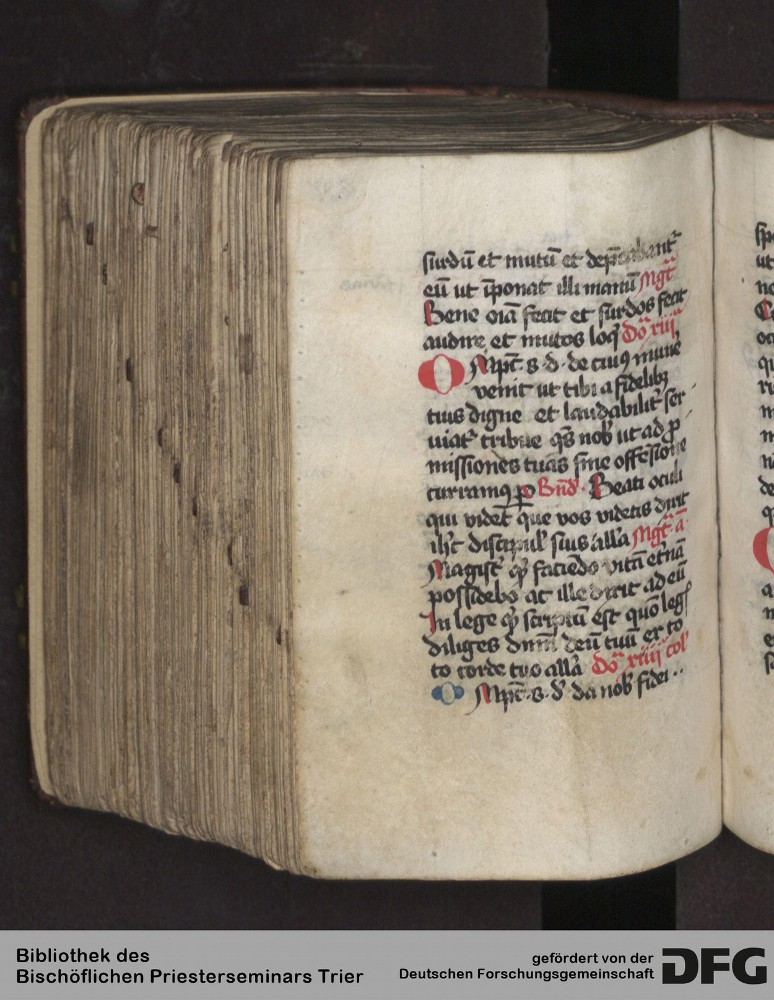 surdū et mutū et dep̄cabant᷑
eū ut īponat illi manū Mgt᷑
Bene oīa fecit et surdos fecit
audire et mutos loq̄ Dōa xiii
OMpt̄ s d de cui9 mūne
venit ut tibi a fidelibꝫ
tuis digne et laudabilit᷑ ser
uiat᷑ tribue qs̄ nob̄ ut ad ꝓ
missiones tuas sine offēsione
curram9 ꝑ Bn̄d Beati oculi
qui vidēt que vos videtis dixit
ih̄c discipul̄ suis all̄a Mgt᷑ a
Magist᷑ qͥ faciēdo vitā et̄nā
possidebo at ille dixit ad eū
In lege qͥ scriptū est quō leg
diliges dn̄m deū tuū ex to
to corde tuo all̄a Dōa xiiii col̄
OMpt̄ s d̄ da nob̄ fidei
sp
ut
no
C
oc
qu
Bibliothek des
Bischöflichen Priesterseminars Trier
gefördert von der
Deutschen Forschungsgemeinschaft
DFG